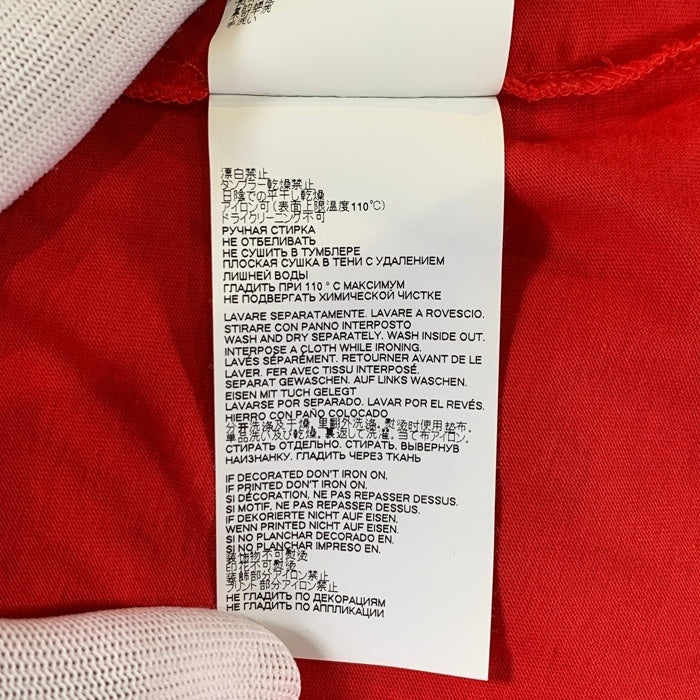 手洗い
漂白禁止
タンブラー乾燥禁止
日陰での平干し乾燥
アイロン可(表面上限温度110℃)
ドライクリーニング不可
РУЧНАЯ СТИРКА
НЕ ОТБЕЛИВАТЬ
НЕ СУШИТЬ В ТУМБЛЕРЕ
ПЛОСКАЯ СУШКА В ТЕНИ С УДАЛЕНИЕМ
ЛИШНЕЙ ВОДЫ
ГЛАДИТЬ ПРИ 110 ° С МАКСИМУМ
НЕ ПОДВЕРГАТЬ ХИМИЧЕСКОЙ ЧИСТКЕ
LAVARE SEPARATAMENTE. LAVARE A ROVESCIO.
STIRARE CON PANNO INTERPOSTO
WASH AND DRY SEPARATELY. WASH INSIDE OUT.
INTERPOSE A CLOTH WHILE IRONING.
LAVÉS SÉPARÉMENT. RETOURNER AVANT DE LE
LAVER. FER AVEC TISSU INTERPOSÉ.
SEPARAT GEWASCHEN. AUF LINKS WASCHEN.
EISEN MIT TUCH GELEGT
LAVARSE POR SEPARADO. LAVAR POR EL REVÉS.
HIERRO CON PAÑO COLOCADO
分开洗涤及干燥. 里翻外洗涤. 熨烫时使用 垫布.
単品洗い及び乾燥. 裏返して洗濯. 当て布アイロン.
СТИРАТЬ ОТДЕЛЬНО. СТИРАТЬ, ВЫВЕРНУВ
НАИЗНАНКУ. ГЛАДИТЬ ЧЕРЕЗ ТКАНЬ
IF DECORATED DON'T IRON ON.
IF PRINTED DON'T IRON ON.
SI DÉCORATION, NE PAS REPASSER DESSUS.
SI MOTIF, NE PAS REPASSER DESSUS.
IF DEKORIERTE NICHT AUF EISEN.
WENN PRINTED NICHT AUF EISEN.
SI NO PLANCHAR DECORADO EN.
SI NO PLANCHAR IMPRESO EN.
装饰物不可熨烫
印花不可熨烫
装飾部分アイロン禁止
プリント部分アイロン禁止
НЕ ГЛАДИТЬ ПО ДЕКОРАЦИЯМ
НЕ ГЛАДИТЬ ПО АППЛИКАЦИИ